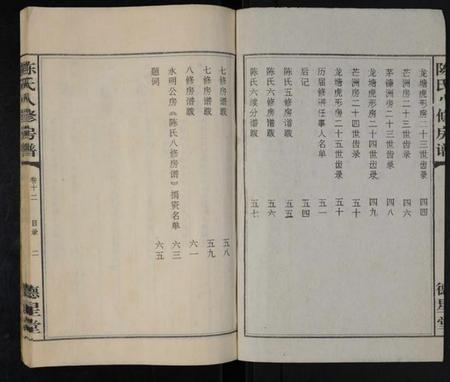 陈氏八修房谱
德星堂
龙塘虎形房二十三世齿录 四四
芒洲房二十三世齿录 四六
茅磉洲房二十三世齿录 四八
龙塘虎形房二十四世齿录 四九
芒洲房二十四世齿录 五十
龙塘虎形房二十五世齿录 五十
历届修谱任事人名单 五一
后记 五四
陈氏五修房谱跋 五五
陈氏六修房谱跋 五六
陈氏六续分谱跋 五七
七修房谱跋 五八
七修房谱跋 五九
八修房谱跋 六一
永明公房《陈氏八修房谱》捐资名单 六三
题词 六五
陈氏八修房谱
卷十二 目录 二
德星堂